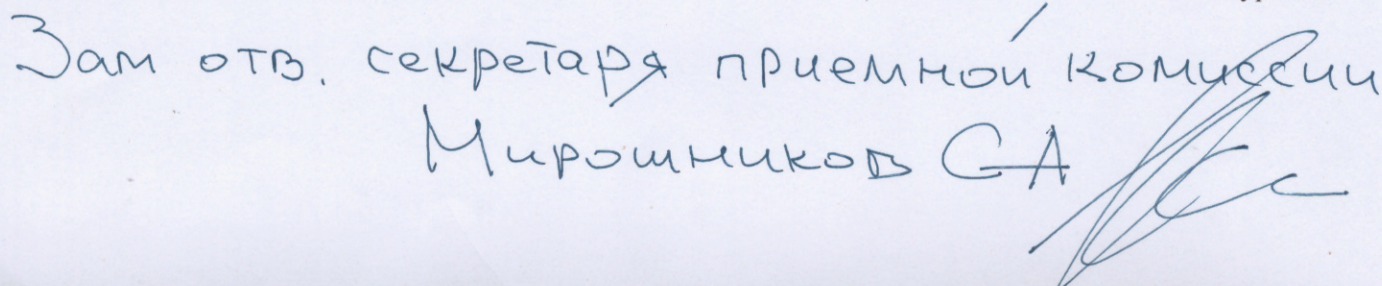 Зам отв. секретаря приемной комиссии
Мирошников СА